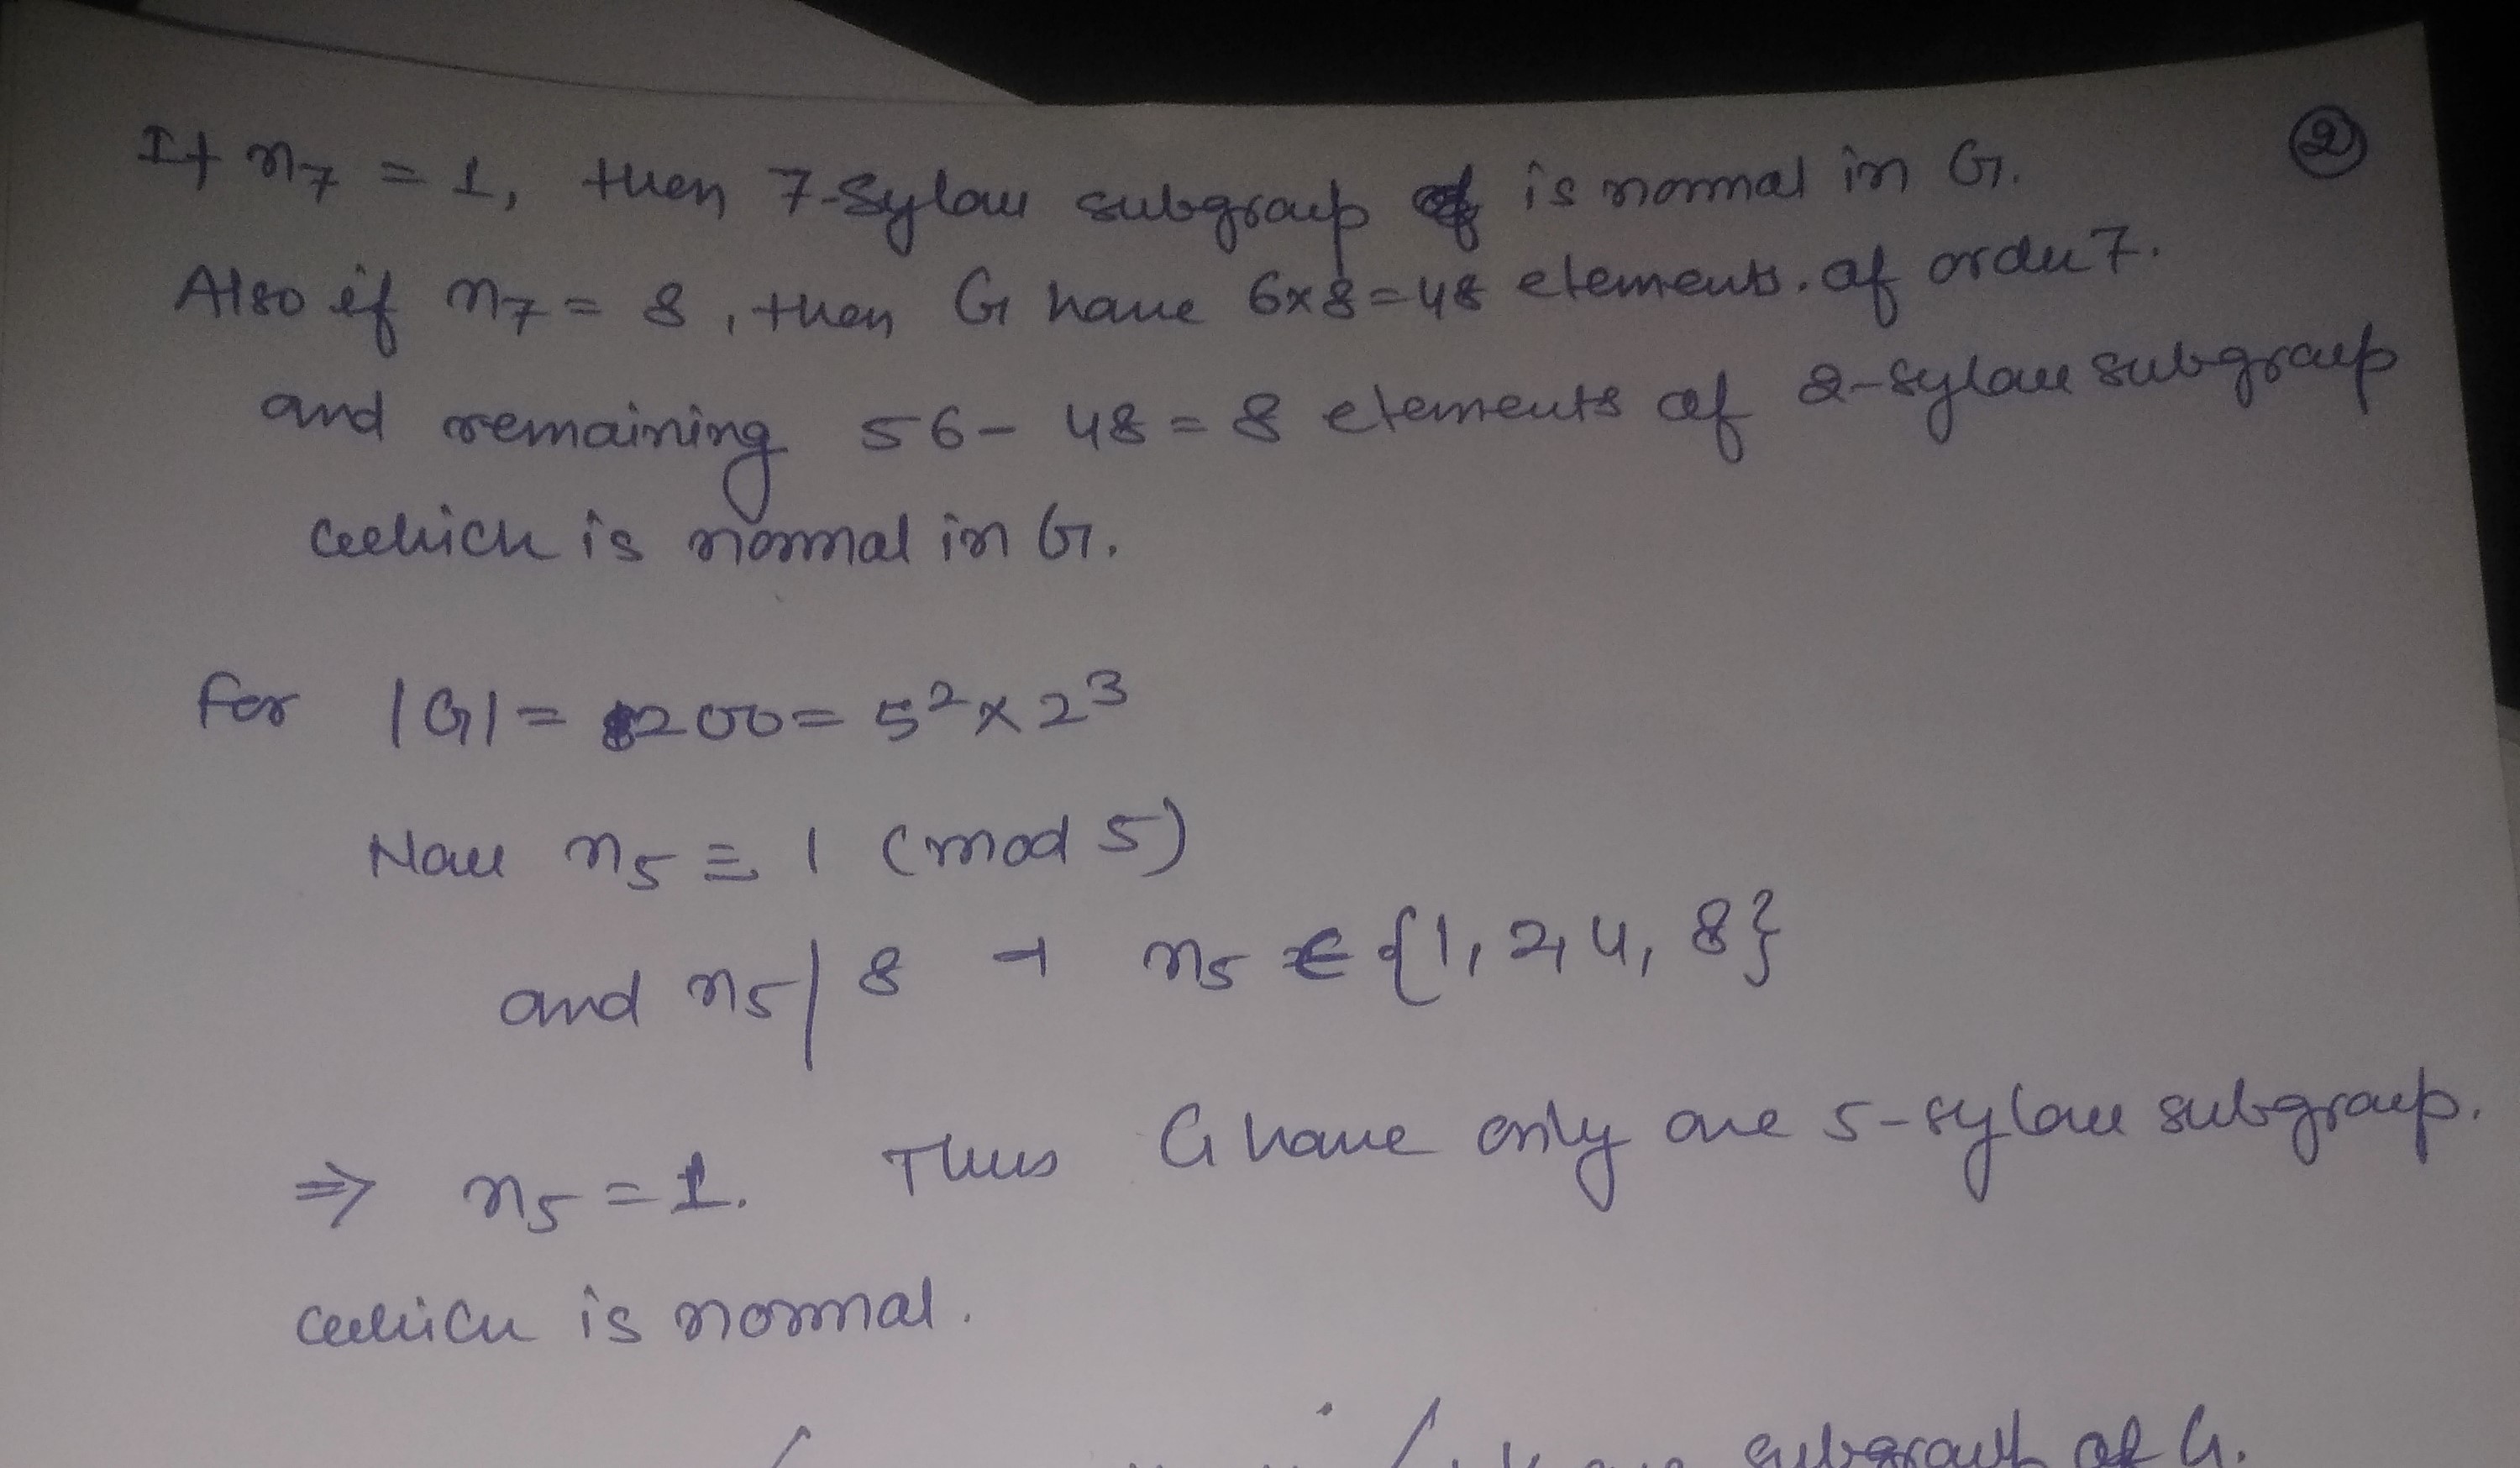 ②
If n₇ = 1, then 7-Sylow subgroup is normal in G.
Also if n₇ = 8, then G have 6×8=48 elements. of order 7.
and remaining 56-48=8 elements of 2-sylow subgroup
which is normal in G.
For |G| = 200 = 5²×2³
Now n₅ ≡ 1 (mod 5)
and n₅|8 ⊣ n₅ ∈ {1, 2, 4, 8}
⇒ n₅ = 1. Thus G have only one 5-sylow subgroup.
which is normal.
subgroup of G.